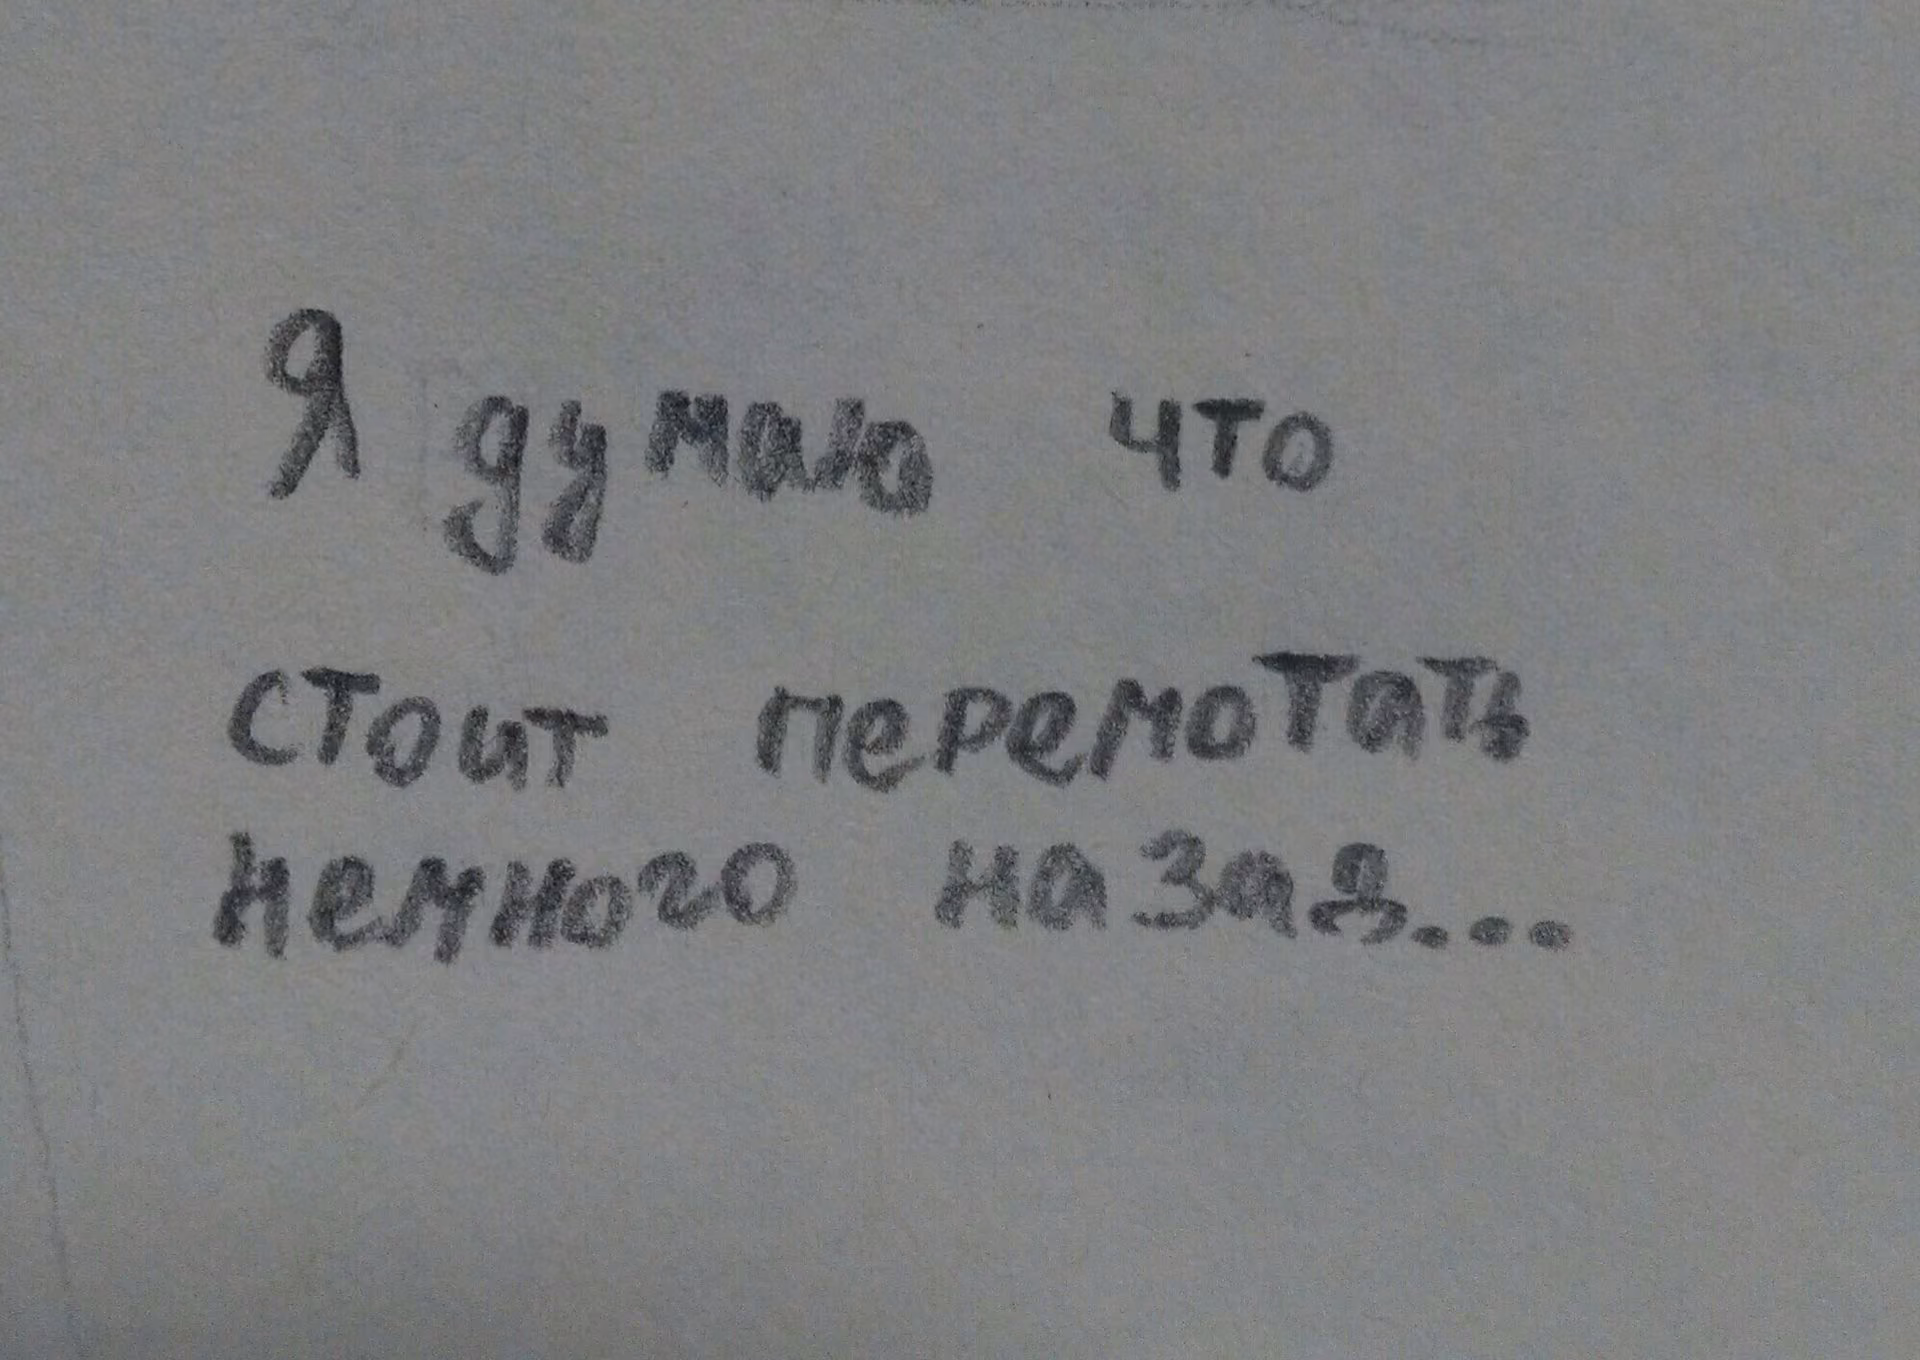 Я думаю что
стоит перемотать
немного назад...